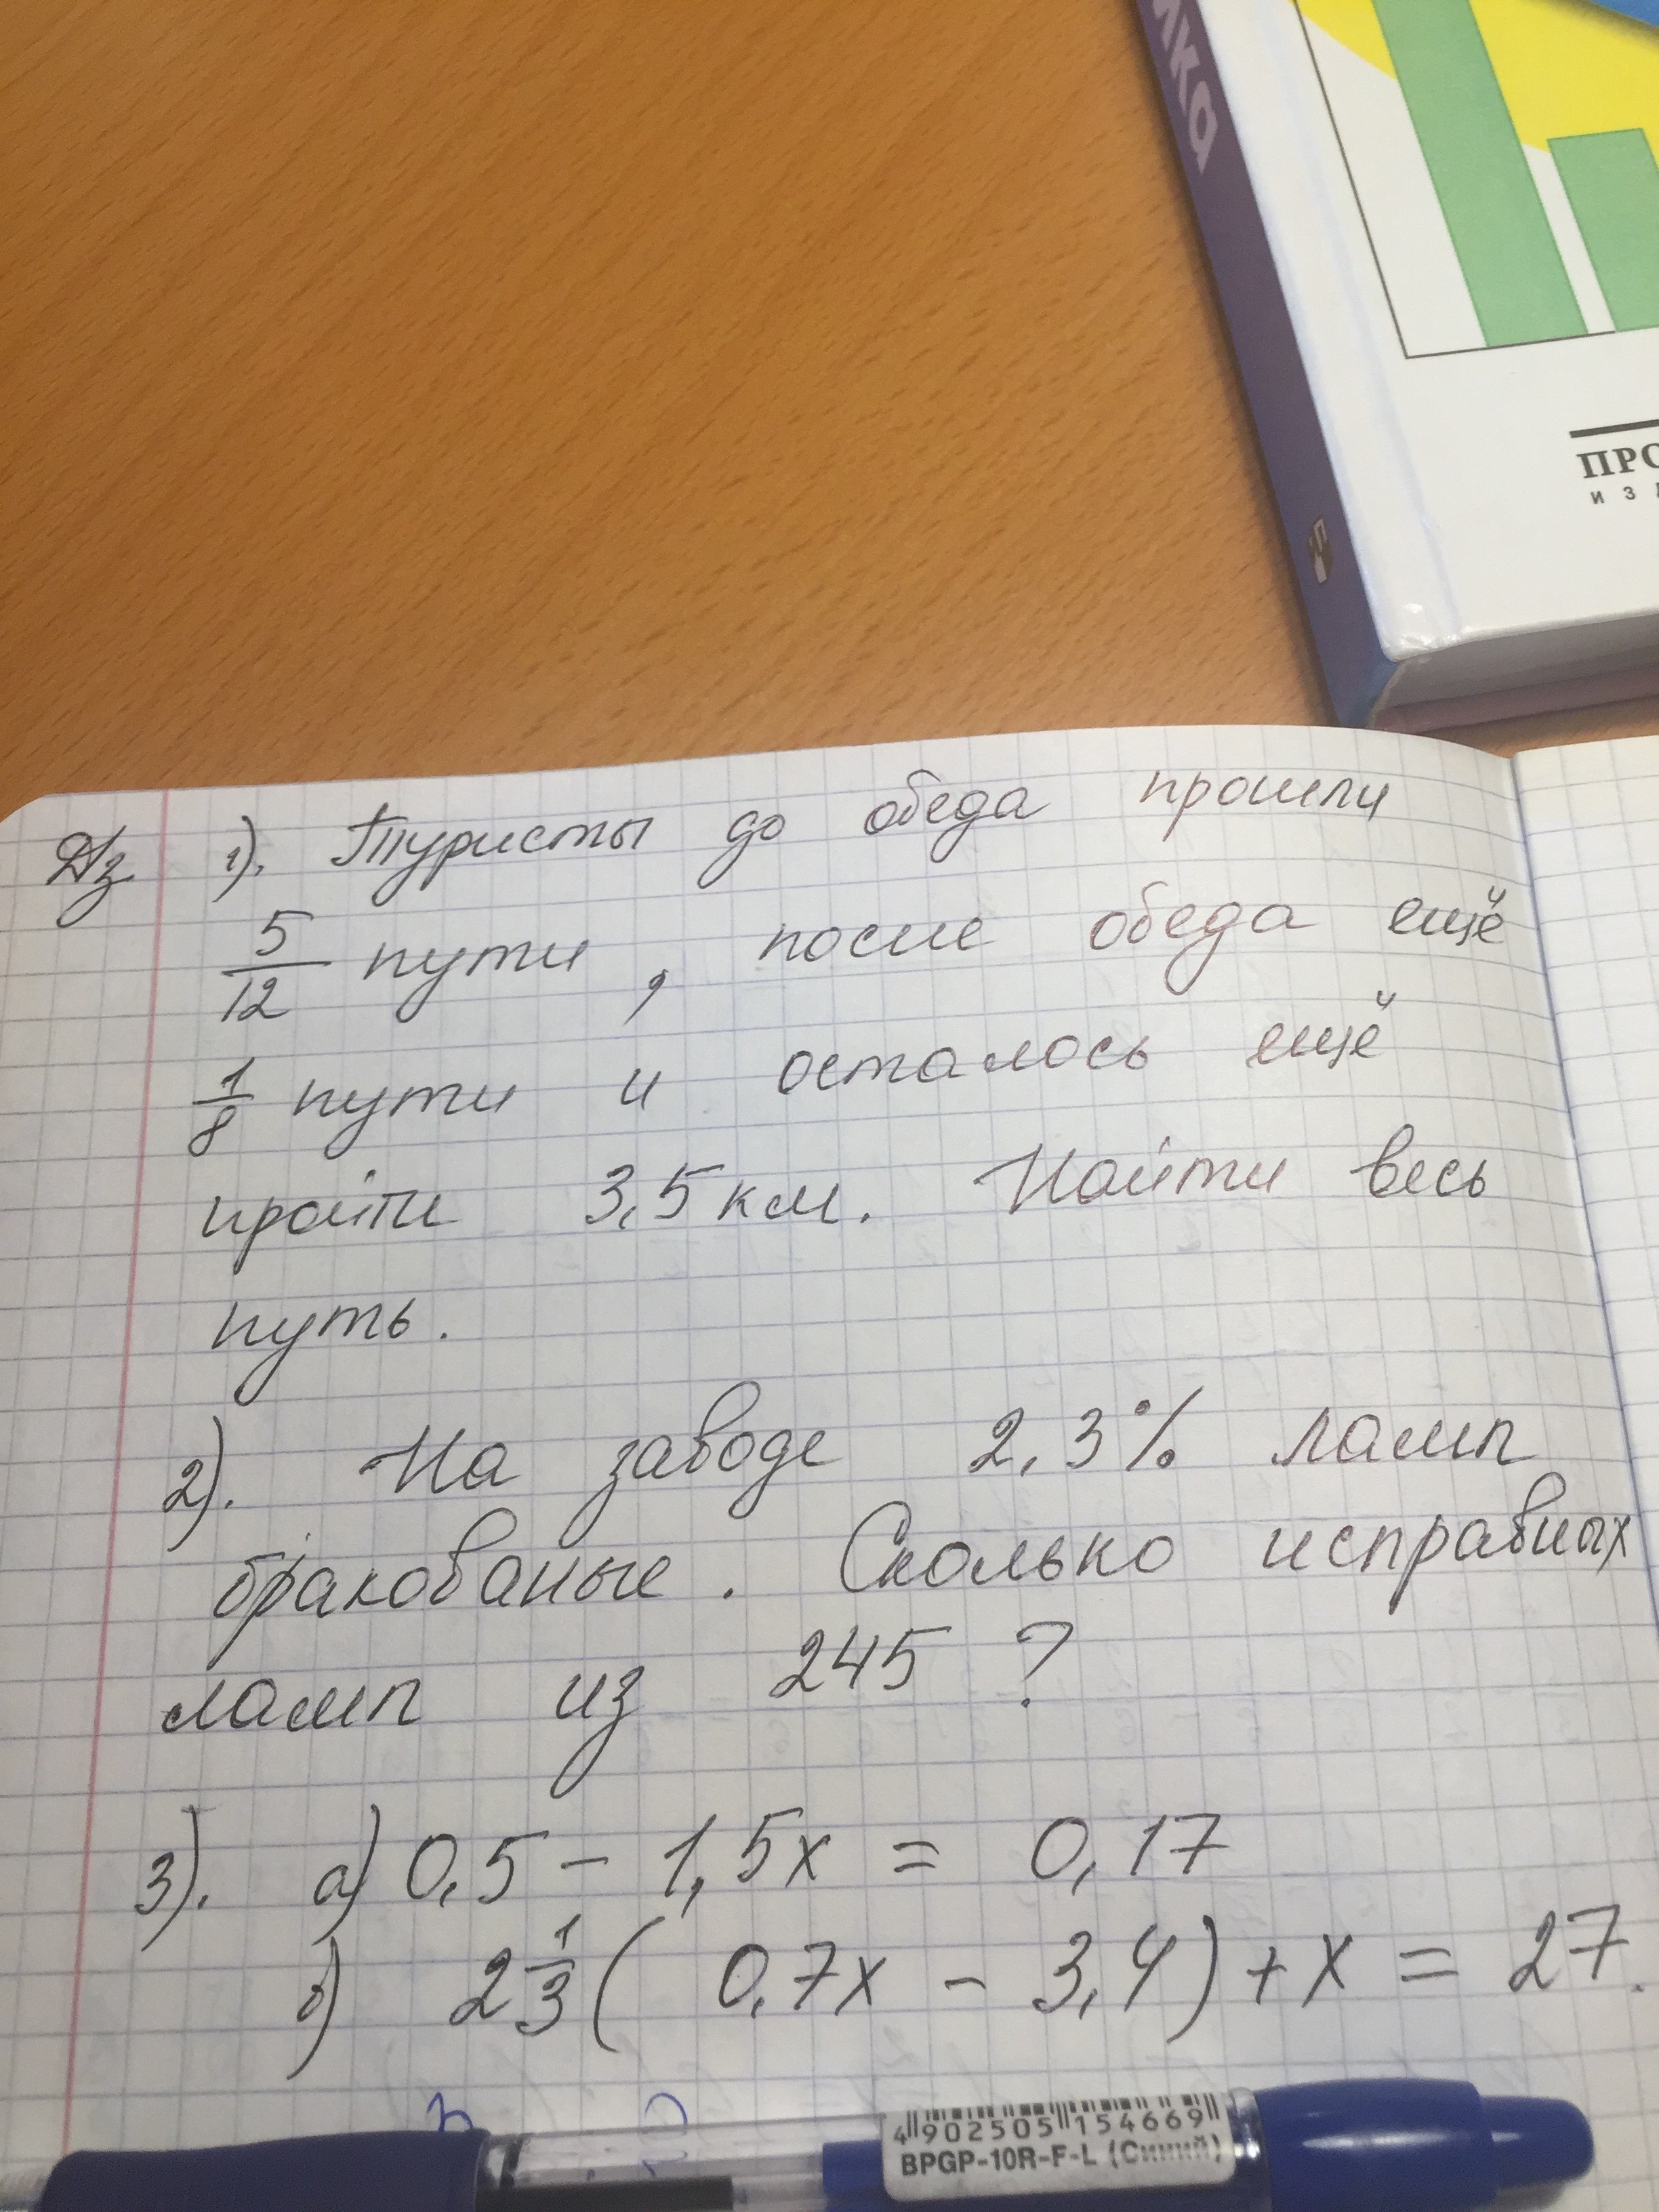 лка
ПРО
ИЗД
Дз 1). Туристы до обеда прошли
5/12 пути, после обеда ещё
1/8 пути и осталось ещё
пройти 3,5 км. Найти весь
путь.
2). На заводе 2,3% ламп
бракованые. Сколько исправных
ламп из 245 ?
3). а) 0,5 - 1,5x = 0,17
б) 2 1/3 ( 0,7x - 3,4) + x = 27.
4 902505 154669
BPGP-10R-F-L (Синий)